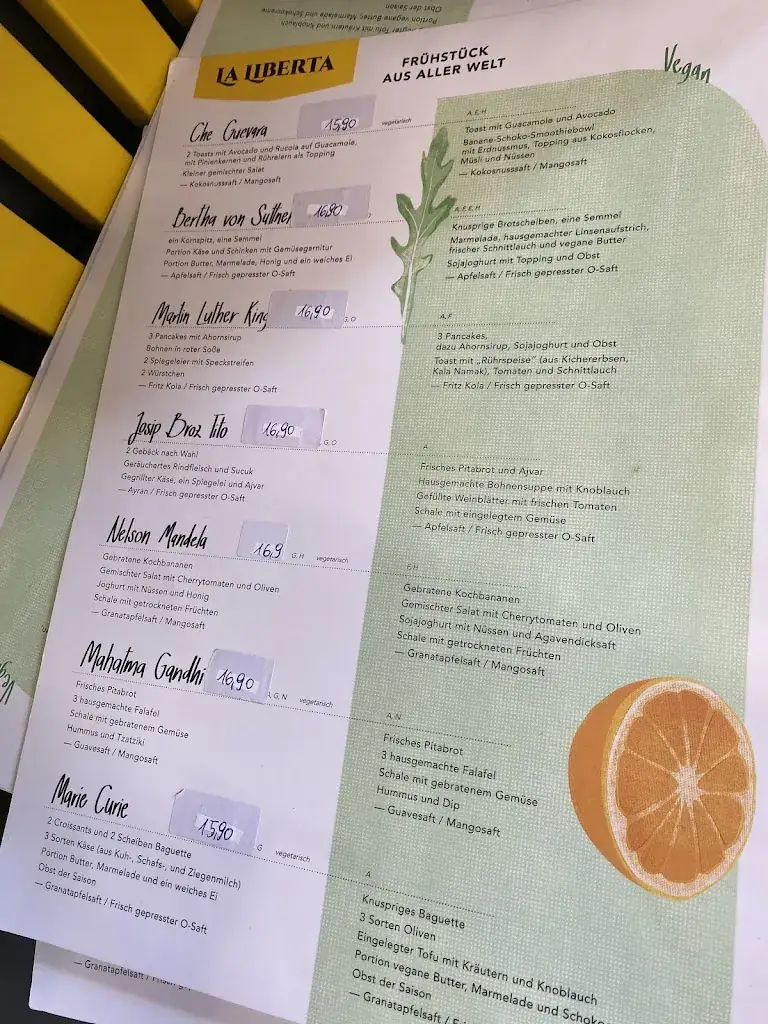 LA LIBERTA
FRÜHSTÜCK
AUS ALLER WELT
Vegan
Che Guevara
15,90
vegetarisch
2 Toasts mit Avocado und Rucola auf Guacamole,
mit Pinienkernen und Rührei als Topping
Kleiner gemischter Salat
— Kokosnusssaft / Mangosaft
A, E, H
Toast mit Guacamole und Avocado
Banane-Schoko-Smoothiebowl
mit Erdnussmus, Topping aus Kokosflocken,
Müsli und Nüssen
— Kokosnusssaft / Mangosaft
Bertha von Suttner
16,90
ein Kornspitz, eine Semmel
Portion Käse und Schinken mit Gemüsegarnitur
Portion Butter, Marmelade, Honig und ein weiches Ei
— Apfelsaft / Frisch gepresster O-Saft
Knusprige Brotscheiben, eine Semmel
Marmelade, hausgemachter Linsenaufstrich,
frischer Schnittlauch und vegane Butter
Sojajoghurt mit Topping und Obst
— Apfelsaft / Frisch gepresster O-Saft
Martin Luther King
16,90
G, O
3 Pancakes mit Ahornsirup
Bohnen in roter Soße
2 Spiegeleier mit Speckstreifen
2 Würstchen
— Fritz Kola / Frisch gepresster O-Saft
A, F
3 Pancakes,
dazu Ahornsirup, Sojajoghurt und Obst
Toast mit „Rührspeise“ (aus Kichererbsen,
Kala Namak), Tomaten und Schnittlauch
— Fritz Kola / Frisch gepresster O-Saft
Josip Broz Tito
16,90
G, O
2 Gebäck nach Wahl
Geräuchertes Rindfleisch und Sucuk
Gegrillter Käse, ein Spiegelei und Ajvar
— Ayran / Frisch gepresster O-Saft
A
Frisches Pitabrot und Ajvar
Hausgemachte Bohnensuppe mit Knoblauch
Gefüllte Weinblätter mit frischen Tomaten
Schale mit eingelegtem Gemüse
— Apfelsaft / Frisch gepresster O-Saft
Nelson Mandela
16,9
G, H
vegetarisch
Gebratene Kochbananen
Gemischter Salat mit Cherrytomaten und Oliven
Joghurt mit Nüssen und Honig
Schale mit getrockneten Früchten
— Granatapfelsaft / Mangosaft
F, H
Gebratene Kochbananen
Gemischter Salat mit Cherrytomaten und Oliven
Sojajoghurt mit Nüssen und Agavendicksaft
Schale mit getrockneten Früchten
— Granatapfelsaft / Mangosaft
Mahatma Gandhi
16,90
A, G, N
vegetarisch
Frisches Pitabrot
3 hausgemachte Falafel
Schale mit gebratenem Gemüse
Hummus und Tzatziki
— Guavesaft / Mangosaft
A, N
Frisches Pitabrot
3 hausgemachte Falafel
Schale mit gebratenem Gemüse
Hummus und Dip
— Guavesaft / Mangosaft
Marie Curie
15,90
G
vegetarisch
2 Croissants und 2 Scheiben Baguette
3 Sorten Käse (aus Kuh-, Schafs-, und Ziegenmilch)
Portion Butter, Marmelade und ein weiches Ei
Obst der Saison
— Granatapfelsaft / Frisch gepresster O-Saft
A
Knuspriges Baguette
3 Sorten Oliven
Eingelegter Tofu mit Kräutern und Knoblauch
Portion vegane Butter, Marmelade und Schoko
Obst der Saison
— Granatapfelsaft /
— Granatapfelsaft /
Tofu mit Kräutern und Knoblauch
Portion vegane Butter, Marmelade und Schokocreme
Obst der Saison